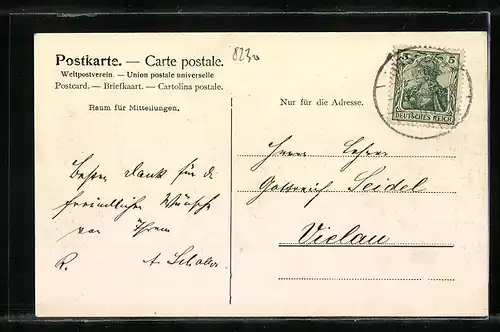 Postkarte. — Carte postale.
Weltpostverein. — Union postale universelle
Postcard. — Briefkaart. — Cartolina postale.
Raum für Mitteilungen.
Besten Dank für di
freundlichen Wünsche
von Ihrem
R. A. Schober
8230
Nur für die Adresse.
5
DEUTSCHES REICH
Herrn Lehrer
Gottreich Seidel
Vielau